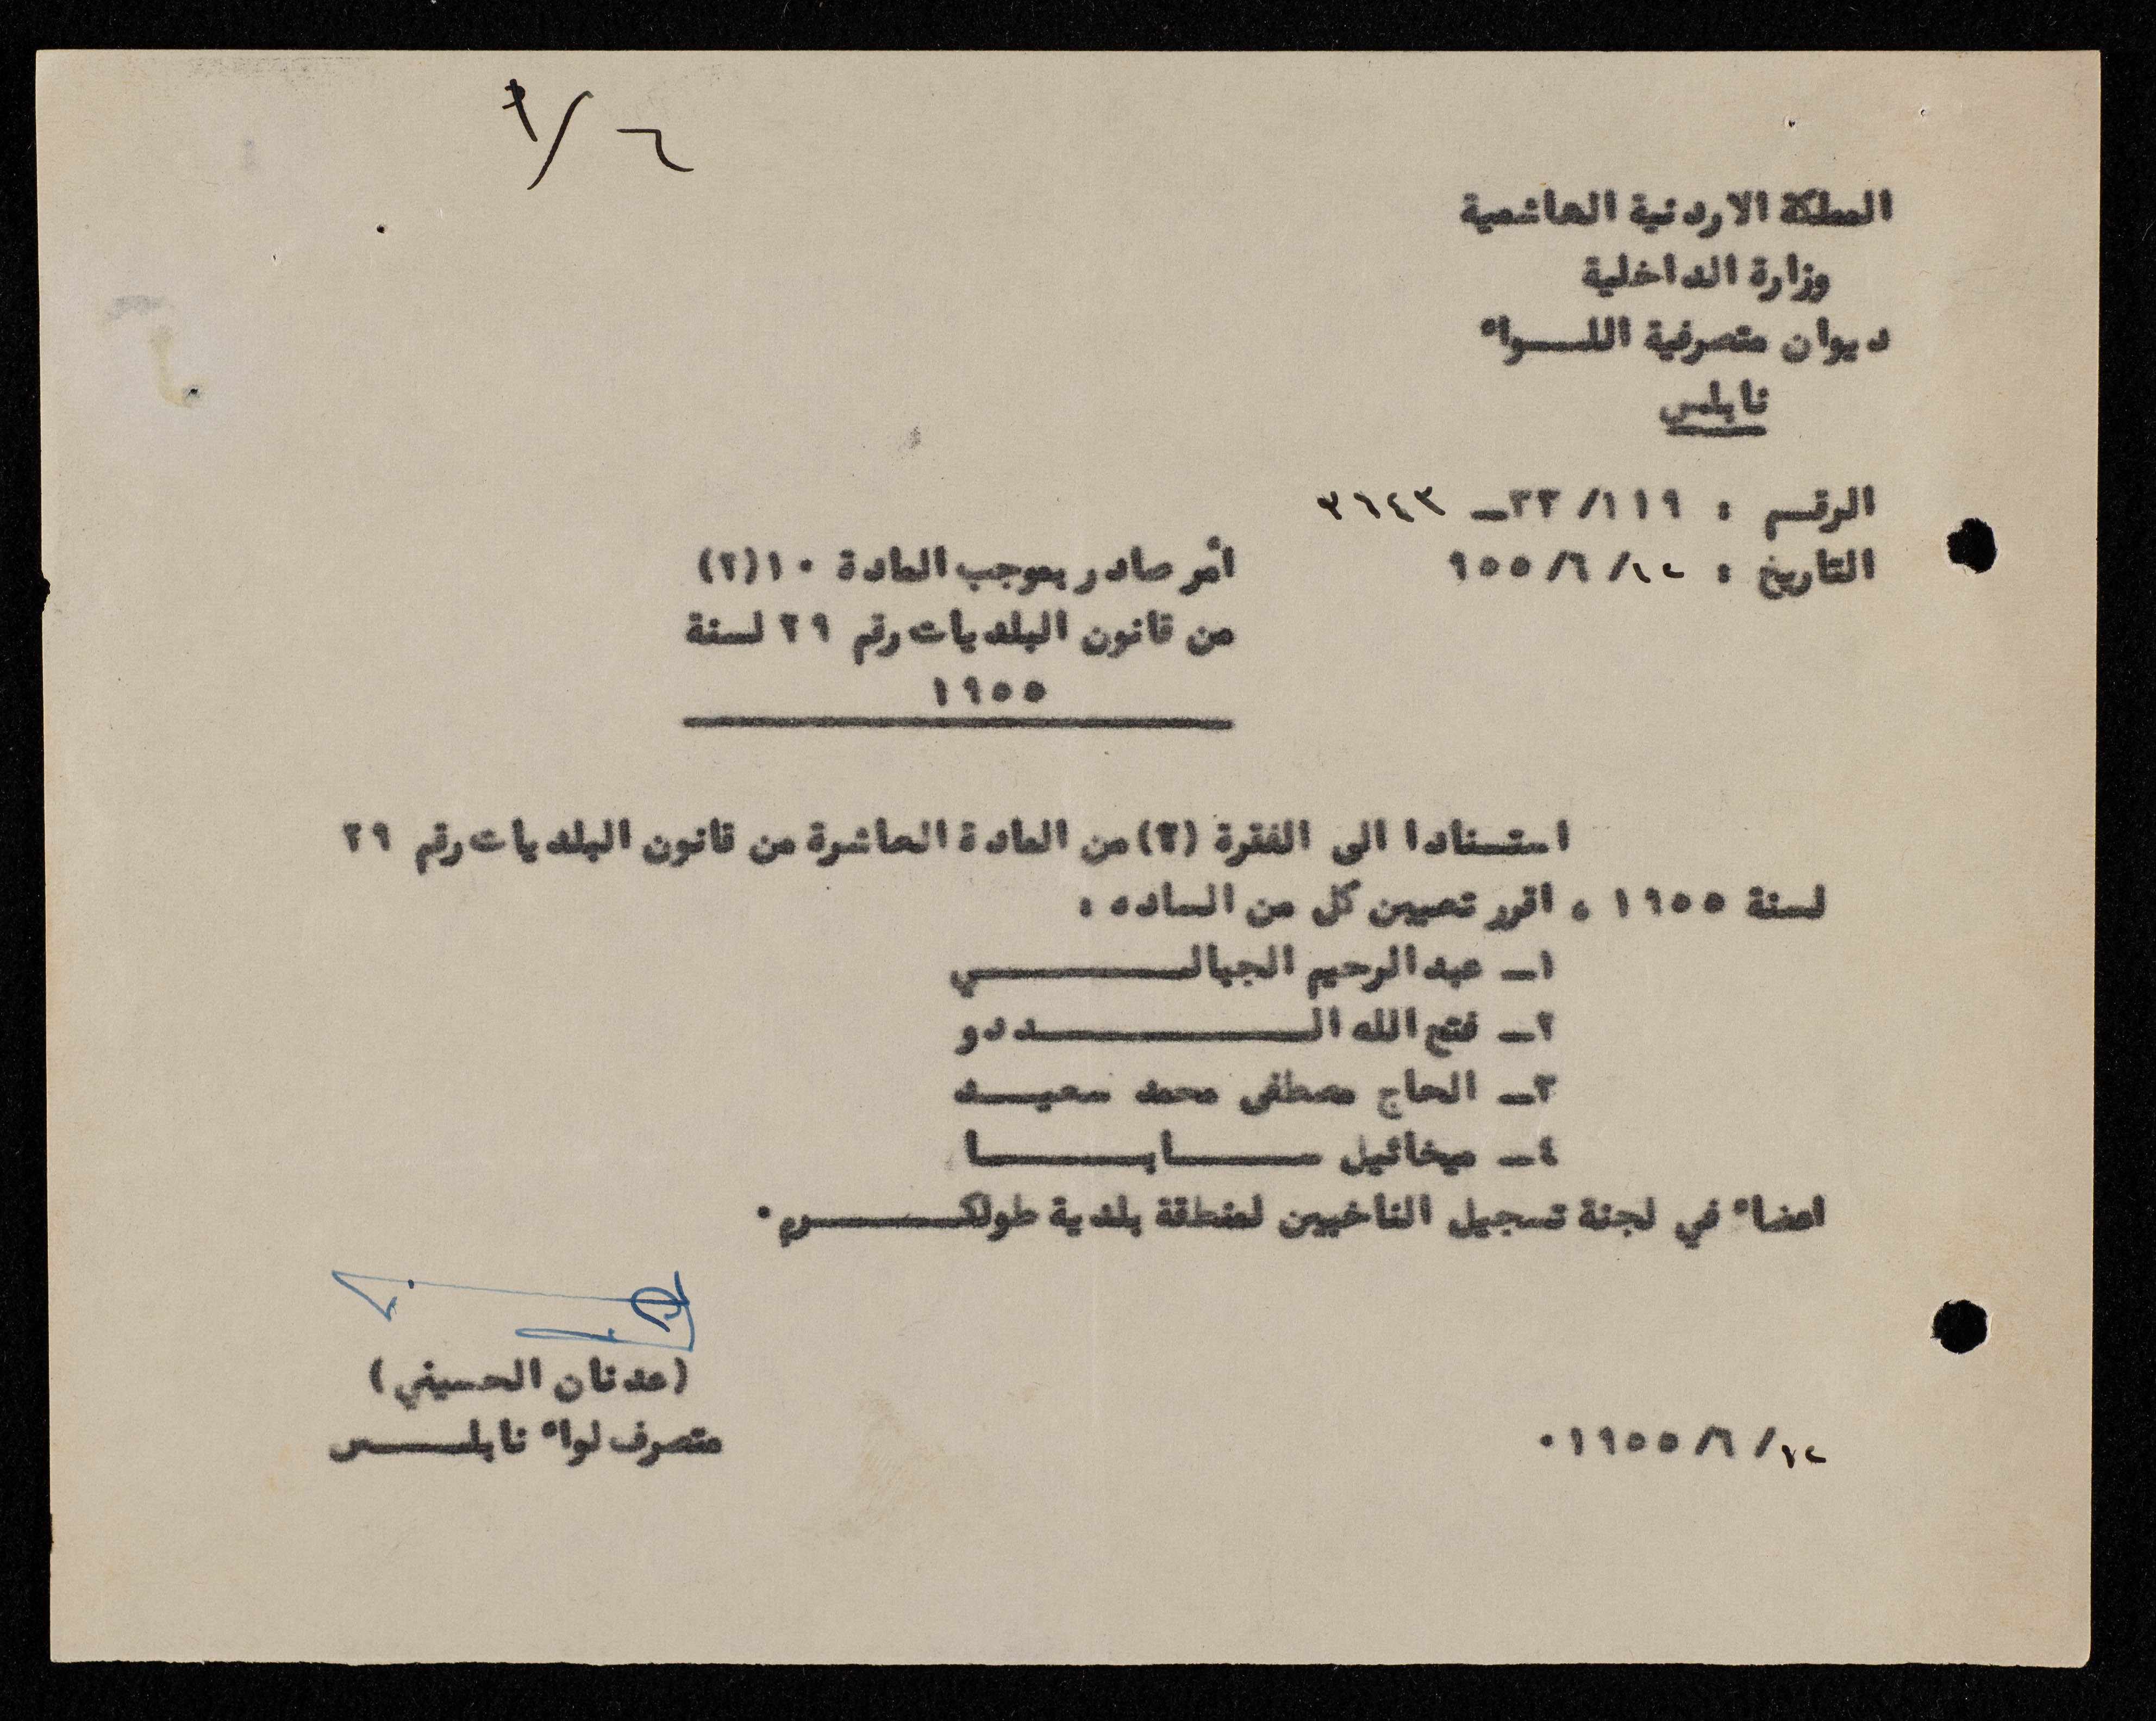 ٦/٢
المملكة الاردنية الهاشمية
وزارة الداخلية
ديوان متصرفية اللـــواء
نابلس
الرقم : ٢٢/١١٩ــ ٣٦٤٣
التاريخ : ٢٠/٦/٩٥٥
أمر صادر بموجب المادة ١٠(٢)
من قانون البلديات رقم ٢٩ لسنة
١٩٥٥
استنادا الى الفقرة (٢) من المادة العاشرة من قانون البلديات رقم ٢٩
لسنة ١٩٥٥ ، اقرر تعيين كل من الساده :
١ــ عبدالرحيم الجيالـــــــــي
٢ــ فتح الله الـــــــــــــددو
٣ــ الحاج مصطفى محمد سعيـــد
٤ــ ميخائيل ســـــابـــــــا
اعضاء في لجنة تسجيل الناخبين لمنطقة بلدية طولكـــــــرم.
(عدنان الحسيني)
متصرف لواء نابلــــس
٢٠/٦/١٩٥٥.